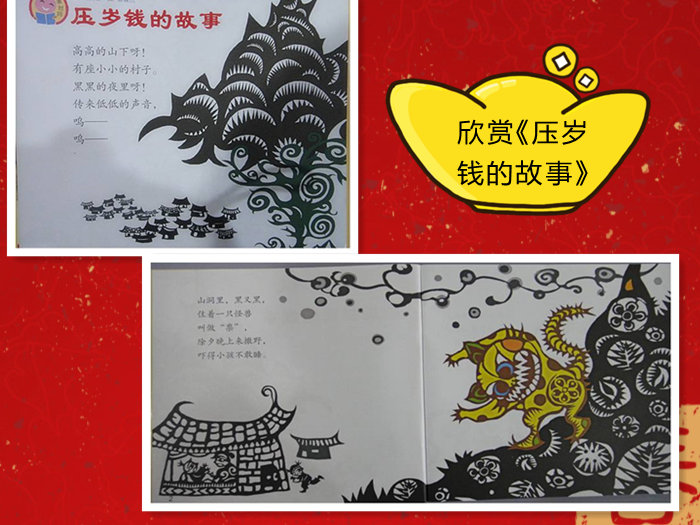 压岁钱的故事
高高的山下呀！
有座小小的村子。
黑黑的夜里呀！
传来低低的声音，
呜——
呜——
欣赏《压岁
钱的故事》
山洞里，黑又黑，
住着一只怪兽
叫做“祟”，
除夕晚上来撒野，
吓得小孩不敢睡。